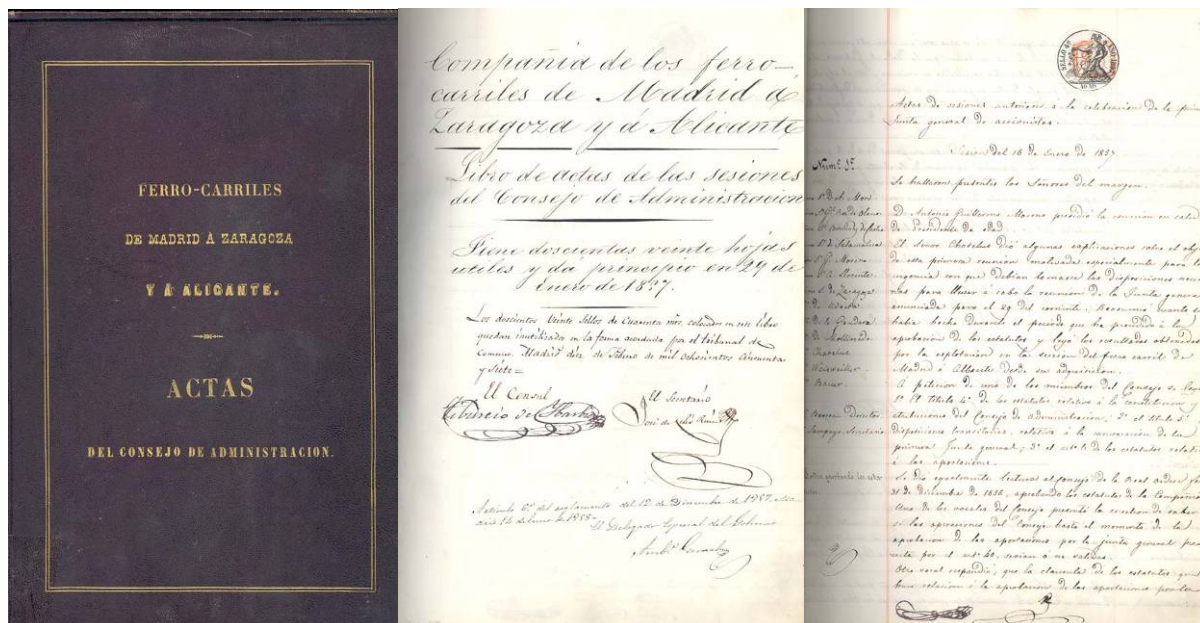 FERRO-CARRILES
DE MADRID Á ZARAGOZA
Y Á ALICANTE.
ACTAS
DEL CONSEJO DE ADMINISTRACION.
Compañia de los ferro-
carriles de Madrid á
Zaragoza y á Alicante
Libro de actas de las sesiones
del Consejo de Administracion
Tiene doscientas veinte hojas
utiles y dá principio en 29 de
enero de 1857.
Los doscientos Veinte Sellos de Cuarenta mrs. colocados en este libro
quedan inutilizados en la forma acordada por el Tribunal de
Comercio. Madrid diez de Febrero de mil ochocientos Cincuenta
y Siete=
El Consul
El Secretario
José de
Articulo 6º del reglamento del 12 de Diciembre de 1857. Ma-
drid 14 de Enero de 1858=
El Delegado Especial del Gobierno
SELLO 4º
Actas de sesiones anteriores á la celebracion de la prim
Junta general de accionistas.
Sesion del 16 de Enero de 1857.
Num. 1º
Se hallaron presentes los Señores del margen.
D. Antonio Guillermo Moreno presidió la reunion en calid
de Presidente de edad.
El Señor Chatelus dió algunas explicaciones sobre el obj
de esta primera reunion motivada especialmente para la
urgencia con que debian tomarse las disposiciones nece
rias para llevar á cabo la reunion de la Junta general
anunciada para el 29 del corriente. Reasumió cuanto se
habia hecho durante el periodo que ha precedido á la
aprobacion de los estatutos y leyó los resultados obtenidos
por la explotacion en la seccion del ferro carril de
Madrid á Albacete desde su adquisicion.
A peticion de uno de los miembros del Consejo se leye
1º El titulo 4º de los estatutos relativo á la constitucion y
atribuciones del Consejo de Administracion; 2º el titulo 5º
disposiciones transitorias, relativo á la convocacion de la
primera Junta general; 3º el artº 6 de los estatutos relati
á las aportaciones.
Se dió igualmente lectura al consejo de la Real orden fe
31 de Diciembre de 1856, aprobando los estatutos de la Compañia
Uno de los vocales del Consejo presentó la cuestion de saber
si las operaciones del Consejo hasta el momento de la
aprobacion de las aportaciones por la junta general
por el artº 40, serian ó no validas.
Otro vocal respondió, que la clausula de los estatutos que
hace relacion á la aprobacion de las aportaciones por la